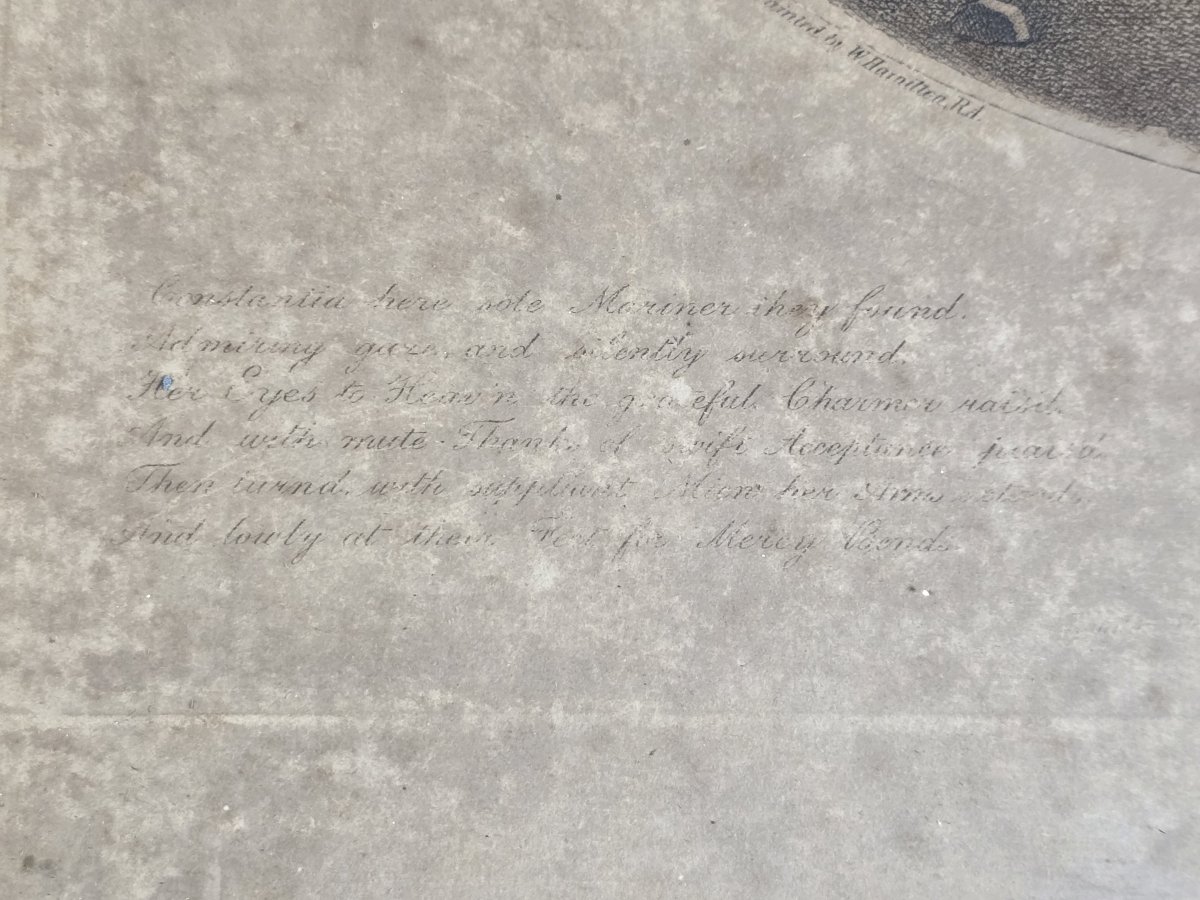 Painted by W. Hamilton, R.A.
Constantia here sole Mariner they found.
Admiring gaze, and silently surround.
Her Eyes to Heav'n the grateful Charmer rais'd,
And with mute Thanks of swift Acceptance prais'd
Then turnd, with suppliant Mien her Arms extends,
And lowly at their Feet for Mercy Bends